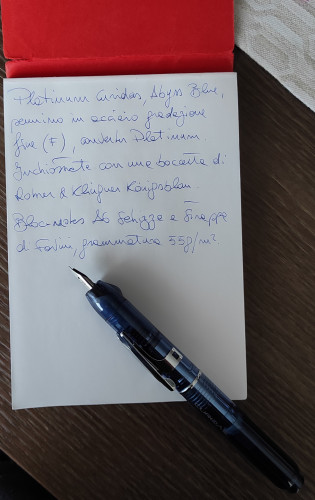 Platinum Curidas, Abyss Blue,
pennino in acciaio gradazione
fine (F), converter Platinum
Inchiostrate con una boccetta di
Rohrer & Klingner Königsblau.
Bloc-notes A6 Schizza e Strappa
di Favini, grammatura 55g/m²